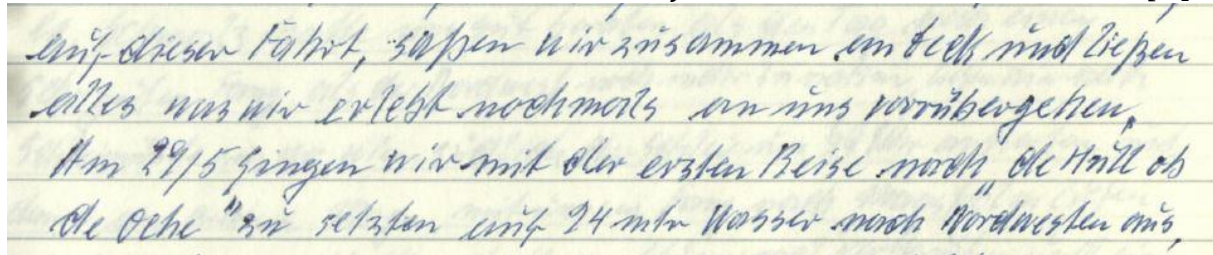 auf dieser Fahrt, saßen wir zusammen an Deck und ließen
alles was wir erlebt nochmals an uns vorrübergehen.
Am 29/5 gingen wir mit der ersten Reise nach "de Hüll ob
de Oehe" zu setzten auf 24 mtr Wasser nach Nordwesten aus,